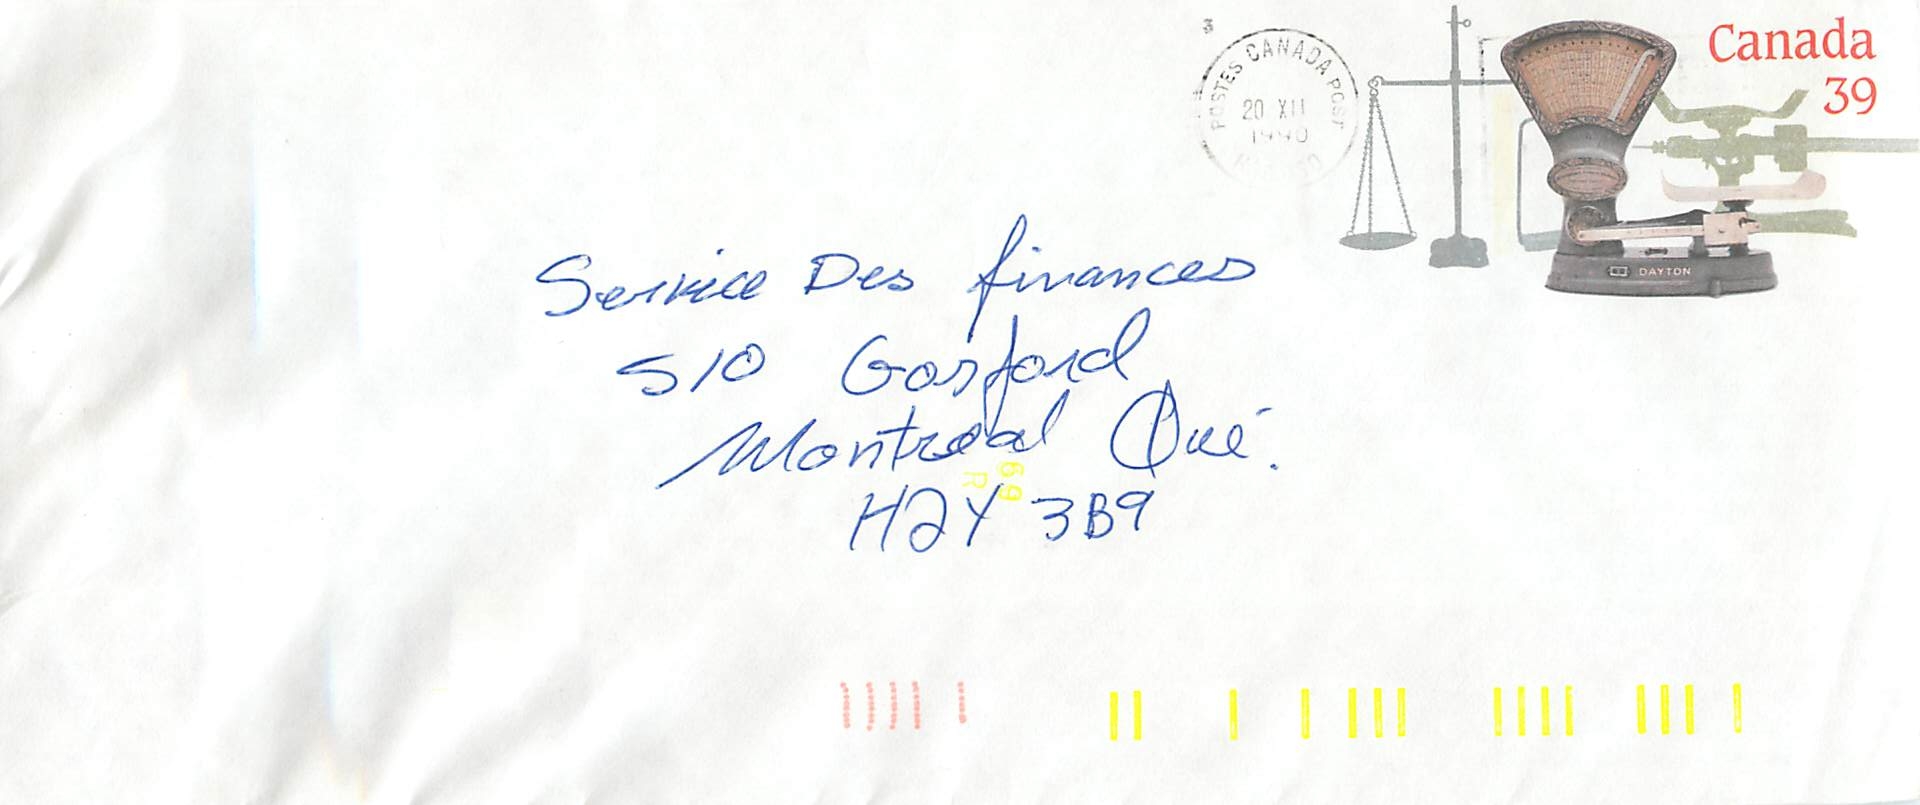 3
POSTES CANADA POST
20 XII
1990
Canada
39
DAYTON
Service Des finances
510 Gosford
Montreal Qué.
69
R
H2Y 3B9